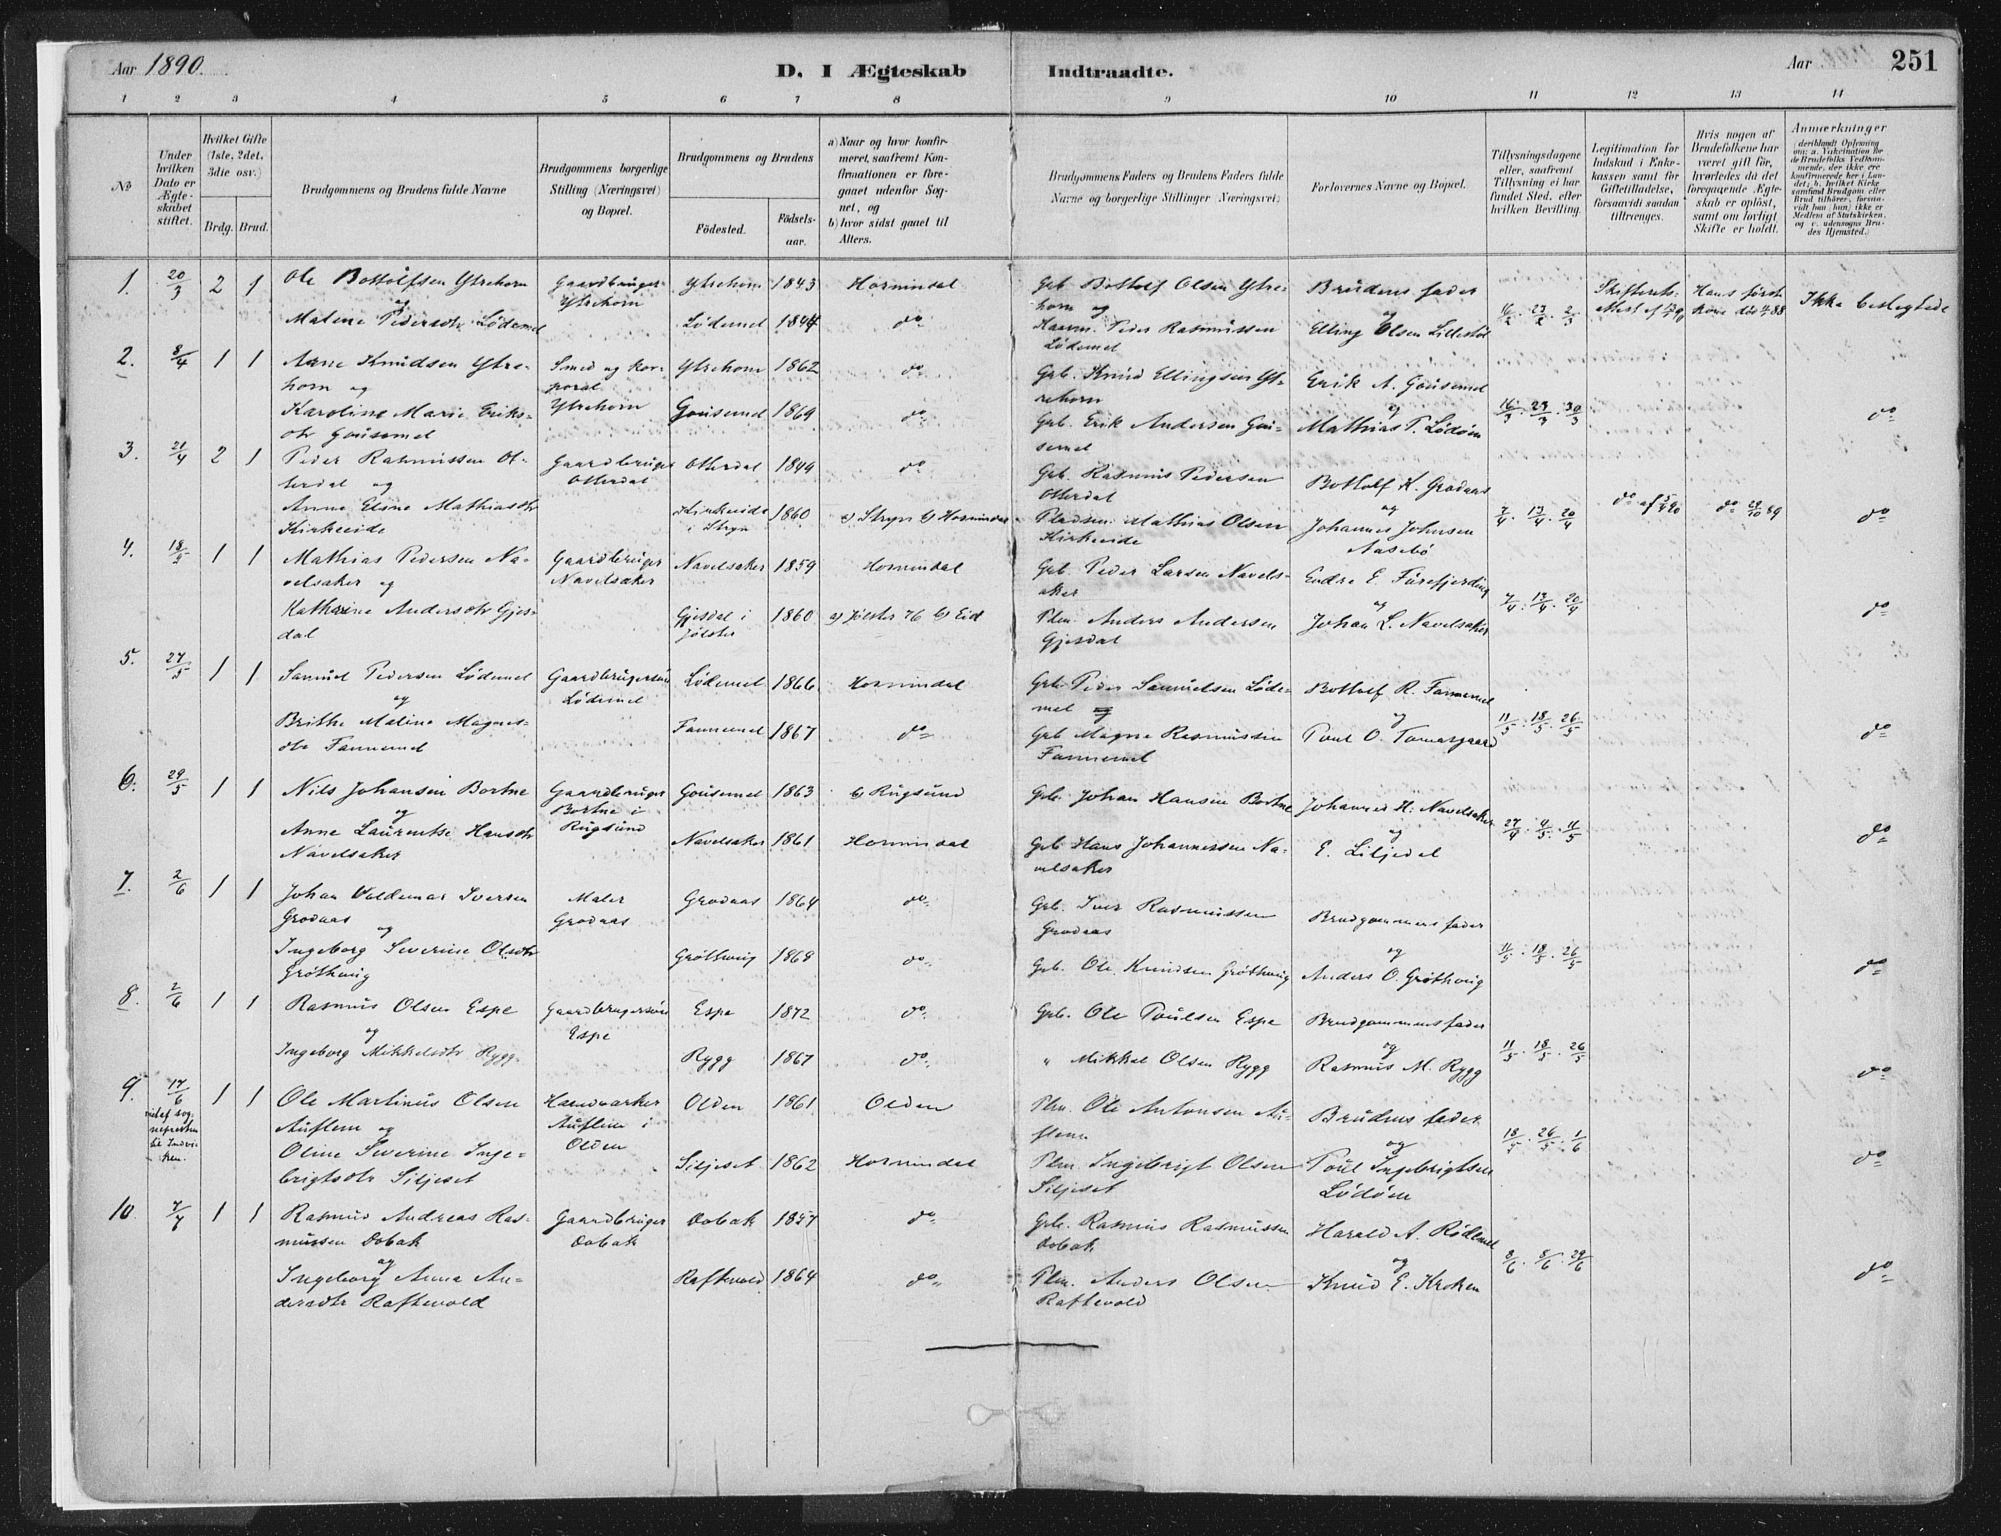 Aar 1890.
D. I Ægteskab Indtraadte.
Aar
251
1 2 3 4 5 6 7 8 9 10 11 12 13 14
No
Under hvilken Dato er Ægteskabet stiftet.
Hvilket Gifte (1ste, 2det, 3die osv.)
Brdg. Brud.
Brudgommens og Brudens fulde Navne
Brudgommens borgerlige Stilling (Næringsvei) og Bopæl.
Brudgommens og Brudens
Fødested. Fødselsaar.
a) Naar og hvor konfirmeret, saafremt Konfirmationen er foregaaet udenfor Sognet, og
b) hvor sidst gaaet til Alters.
Brudgommens Faders og Brudens Faders fulde Navne og borgerlige Stillinger (Næringsvei)
Forlovernes Navne og Bopæl.
Tillysningsdagene eller, saafremt Tillysning ei har fundet Sted, efter hvilken Bevilling.
Legitimation for Indskud i Enkekassen samt for Giftetilladelse, forsaavidt saadan tiltrænges.
Hvis nogen af Brudefolkene har været gift før, hvorledes da det foregaaende Ægteskab er opløst, samt om lovligt Skifte er holdt.
Anmærkninger
1. 20/3 2 1 Ole Bottolfsen Ytrehorn Gaardbruger Ytrehorn 1843 Hornindal Grb. Bottolf Olsen Ytre- Brudens fader
og Ytrehorn horn og og 16/2 . 23/2 . 2/3 Ikke beslegtede
Malene Pedersdtr Lødemel Lødemel 1844 do Kaarm. Peder Rasmussen Elling Olsen Lillestøl
Lødemel
2. 8/4 1 1 Arne Knudsen Ytre- Smed og kor- Ytrehorn 1862 do Grb. Knud Ellingsen Yt- Erik A. Gousemel
horn og poral rehorn og
Karoline Marie Eriks- Ytrehorn Gousemel 1869 do Grb. Erik Andersen Gou- Mathias P. Lødøen 16/3 . 23/3 . 30/3 do
dtr Gousemel semel
3. 21/4 2 1 Peder Rasmussen Ot- Gaardbruger Otterdal 1849 do Grb. Rasmus Pedersen Bottolf K. Grodaas
terdal og Otterdal Otterdal og
Anne Elene Mathiasdtr Kirkeeide 1860 a) Stryn b) Hornindal Pladsm. Mathias Olsen Johannes Johnsen 7/4 . 13/4 . 20/4 do
Kirkeeide i Stryn Kirkeeide Aasebø
4. 18/5 1 1 Mathias Pedersen Na- Gaardbruger Navelsaker 1859 Hornindal Grb. Peder Larsen Navels- Endre E. Furefjerding
velsaker og Navelsaker aker og
Kathrine Andersdtr Gjes- Gjesdal i 1860 a) Jølster 76 b) Eid Plm. Anders Andersen Johan L. Navelsaker 7/4 . 13/4 . 20/4 do
dal Jølster Gjesdal
5. 27/5 1 1 Samuel Pedersen Lødemel Gaardbrugersøn Lødemel 1866 Hornindal Grb. Peder Samuelsen Løde- Bottolf R. Fannemel
og Lødemel mel og og
Brithe Malene Magnes- Fannemel 1867 do Grb Magne Rasmussen Poul O. Tomasgaard 11/5 . 18/5 . 26/5 do
dtr Fannemel Fannemel
6. 29/5 1 1 Nils Johansen Bortne Gaardbruger Gousemel 1863 b) Rugsund Grb. Johan Hansen Bortne Johannes H. Navelsaker
og Bortne i og
Anne Laurentse Hansdtr Rugsund Navelsaker 1861 Hornindal Grb Hans Johannessen Na- E. Liljedal 27/4 . 4/5 . 11/5 do
Navelsaker velsaker
7. 2/6 1 1 Johan Valdemar Iversen Maler Grodaas 1864 do Grb. Iver Rasmussen Brudgommens fader
Grodaas og Grodaas Grodaas og
Ingeborg Severine Olsdtr Grøthaug 1868 do Grb. Ole Knudsen Grøthaug Anders O. Grøthaug 11/5 . 18/5 . 26/5 do
Grøthaug
8. 2/6 1 1 Rasmus Olsen Espe Gaardbrugersøn Espe 1872 do Grb. Ole Poulsen Espe Brudgommens fader
og Espe og
Ingeborg Mikkelsdtr Rygg Rygg 1867 do " Mikkel Olsen Rygg Rasmus M. Rygg 11/5 . 18/5 . 26/5 do
9. 17/6 1 1 Ole Martinus Olsen Haandværker Olden 1861 Olden Plm. Ole Antonsen Au- Brudens fader
Auflem og Auflem i flem og
Oline Severine Inge- Olden Siljeset 1862 Hornindal Plm. Ingebrigt Olsen Poul Ingebrigtsen 18/5 . 26/5 . 1/6 do
brigtsdtr Siljeset Siljeset Lødøen
10. 7/7 1 1 Rasmus Andreas Ras- Gaardbruger Dobak 1857 do Grb. Rasmus Rasmussen Harald A. Rødemel
mussen Dobak Dobak Dobak og
og
Ingeborg Anna An- Raftevold 1864 do Plm. Anders Olsen Knud E. Kroken do
dersdtr Raftevold Raftevold